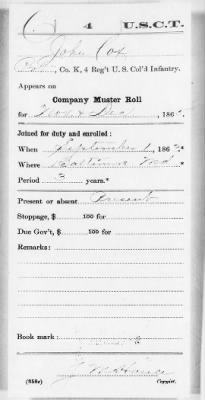 C 4 U.S.C.T.
John Cox
, Co. K, 4 Reg't U. S. Col'd Infantry.
Appears on
Company Muster Roll
for Nov & Dec, 186
Joined for duty and enrolled:
When September 1, 1863.*
Where Baltimore Md *
Period 3 years.*
Present or absent Present
Stoppage, $ 100 for
Due Gov't, $ 100 for
Remarks:
Book mark:
(358c) Copyist.